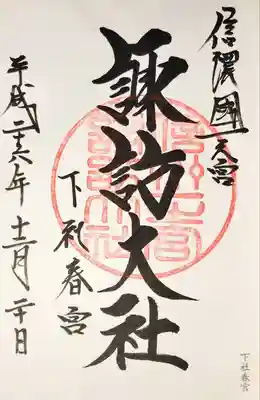 信濃國一之宮
諏訪大社
下社春宮
平成二十六年十二月二十日
下社春宮